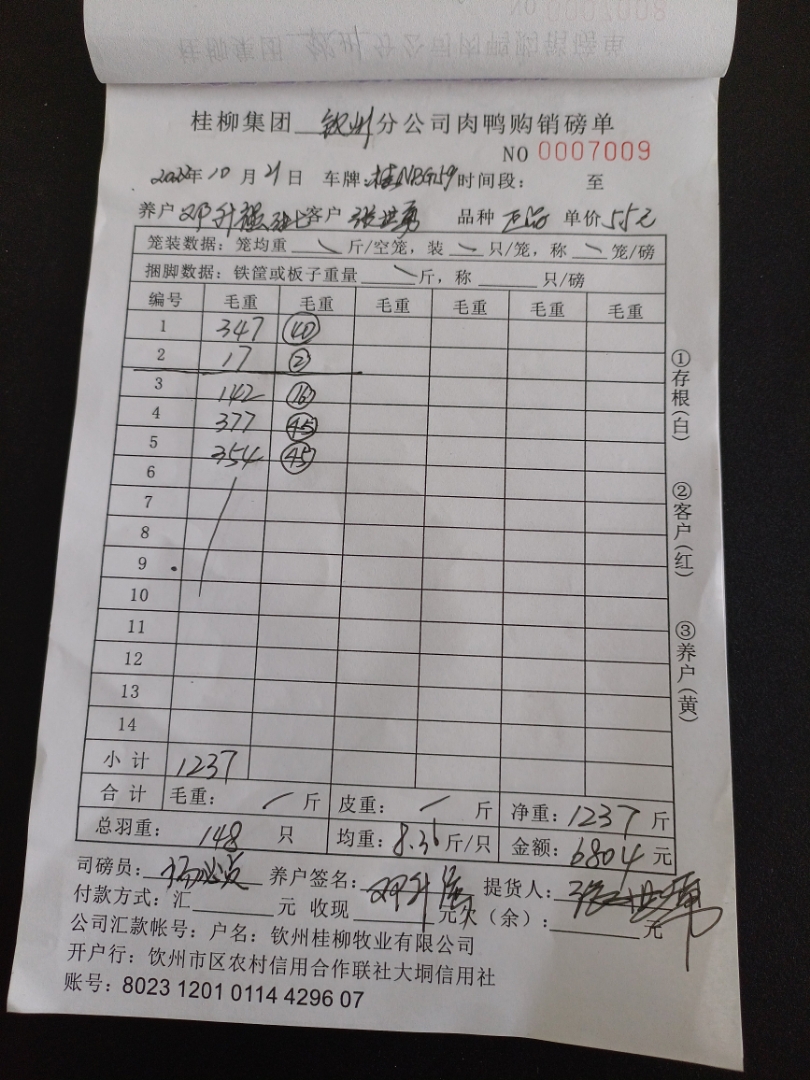 桂柳集团 钦州 分公司肉鸭购销磅单
NO 0007009
2022年10月21日 车牌: 时间段: 至
养户 邓升强 客户 张世勇 品种 正品 单价 5.5元
笼装数据: 笼均重 斤/空笼, 装 只/笼, 称 笼/磅
捆脚数据: 铁筐或板子重量 斤, 称 只/磅
编号 毛重 毛重 毛重 毛重 毛重 毛重
1 347 40
2 17 2
3 142 16
4 377 45
5 354 45
6
7
8
9
10
11
12
13
14
小计 1237
合计 毛重: 斤 皮重: 斤 净重: 1237 斤
总羽重: 148 只 均重: 8.36 斤/只 金额: 6804 元
司磅员: 养户签名: 邓升强 提货人: 张世勇
付款方式: 汇 元 收现 元欠(余): 元
公司汇款帐号: 户名: 钦州桂柳牧业有限公司
开户行: 钦州市区农村信用合作联社大垌信用社
账号: 8023 1201 0114 4296 07
①存根(白)
②客户(红)
③养户(黄)